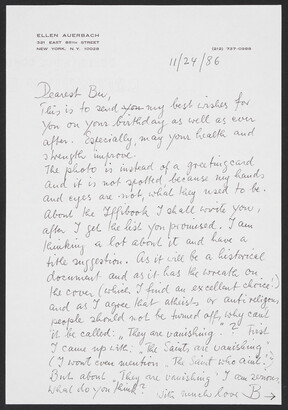 ELLEN AUERBACH
321 EAST 89TH STREET
NEW YORK, N.Y. 10028
(212) 737-0888
11/24/86
Dearest Bu,
This is to send you my best wishes for
you on your birthday as well as ever
after. Especially, may your health and
strength improve.
The photo is instead of a greetingcard
and it is not spotted because my hands
and eyes are not, what they used to be.
About the book I shall wrote you,
after I get the list you promised. I am
thinking a lot about it and have a
title suggestion. As it will be a historical
document and as it has the wreath on
the cover (which I find an excellent choice!)
and as I agree that atheists or anti religious
people should not be turned off, why cant
it be called: „They are vanishing"? First
I came up with: „The Saints are vanishing"
(I wont even mention „The Saint who aint!")
But about „They are vanishing" I am serious,
what do you think?
With much love